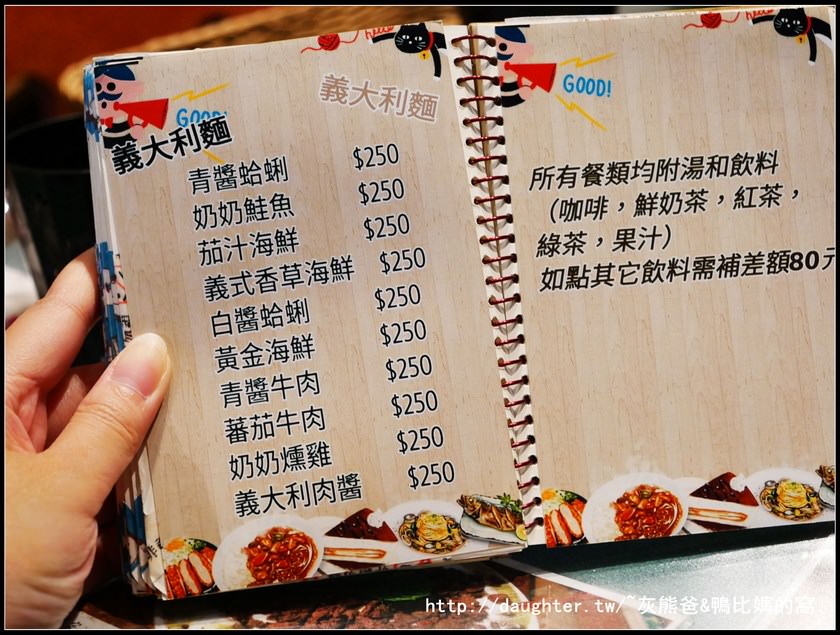 hello
GOOD!
義大利麵
義大利麵
青醬蛤蜊 $250
奶奶鮭魚 $250
茄汁海鮮 $250
義式香草海鮮 $250
白醬蛤蜊 $250
黃金海鮮 $250
青醬牛肉 $250
蕃茄牛肉 $250
奶奶燻雞 $250
義大利肉醬 $250
hello
GOOD!
所有餐類均附湯和飲料
（咖啡，鮮奶茶，紅茶，
綠茶，果汁）
如點其它飲料需補差額80元
http://daughter.tw/~灰熊爸&鴨比媽的窩